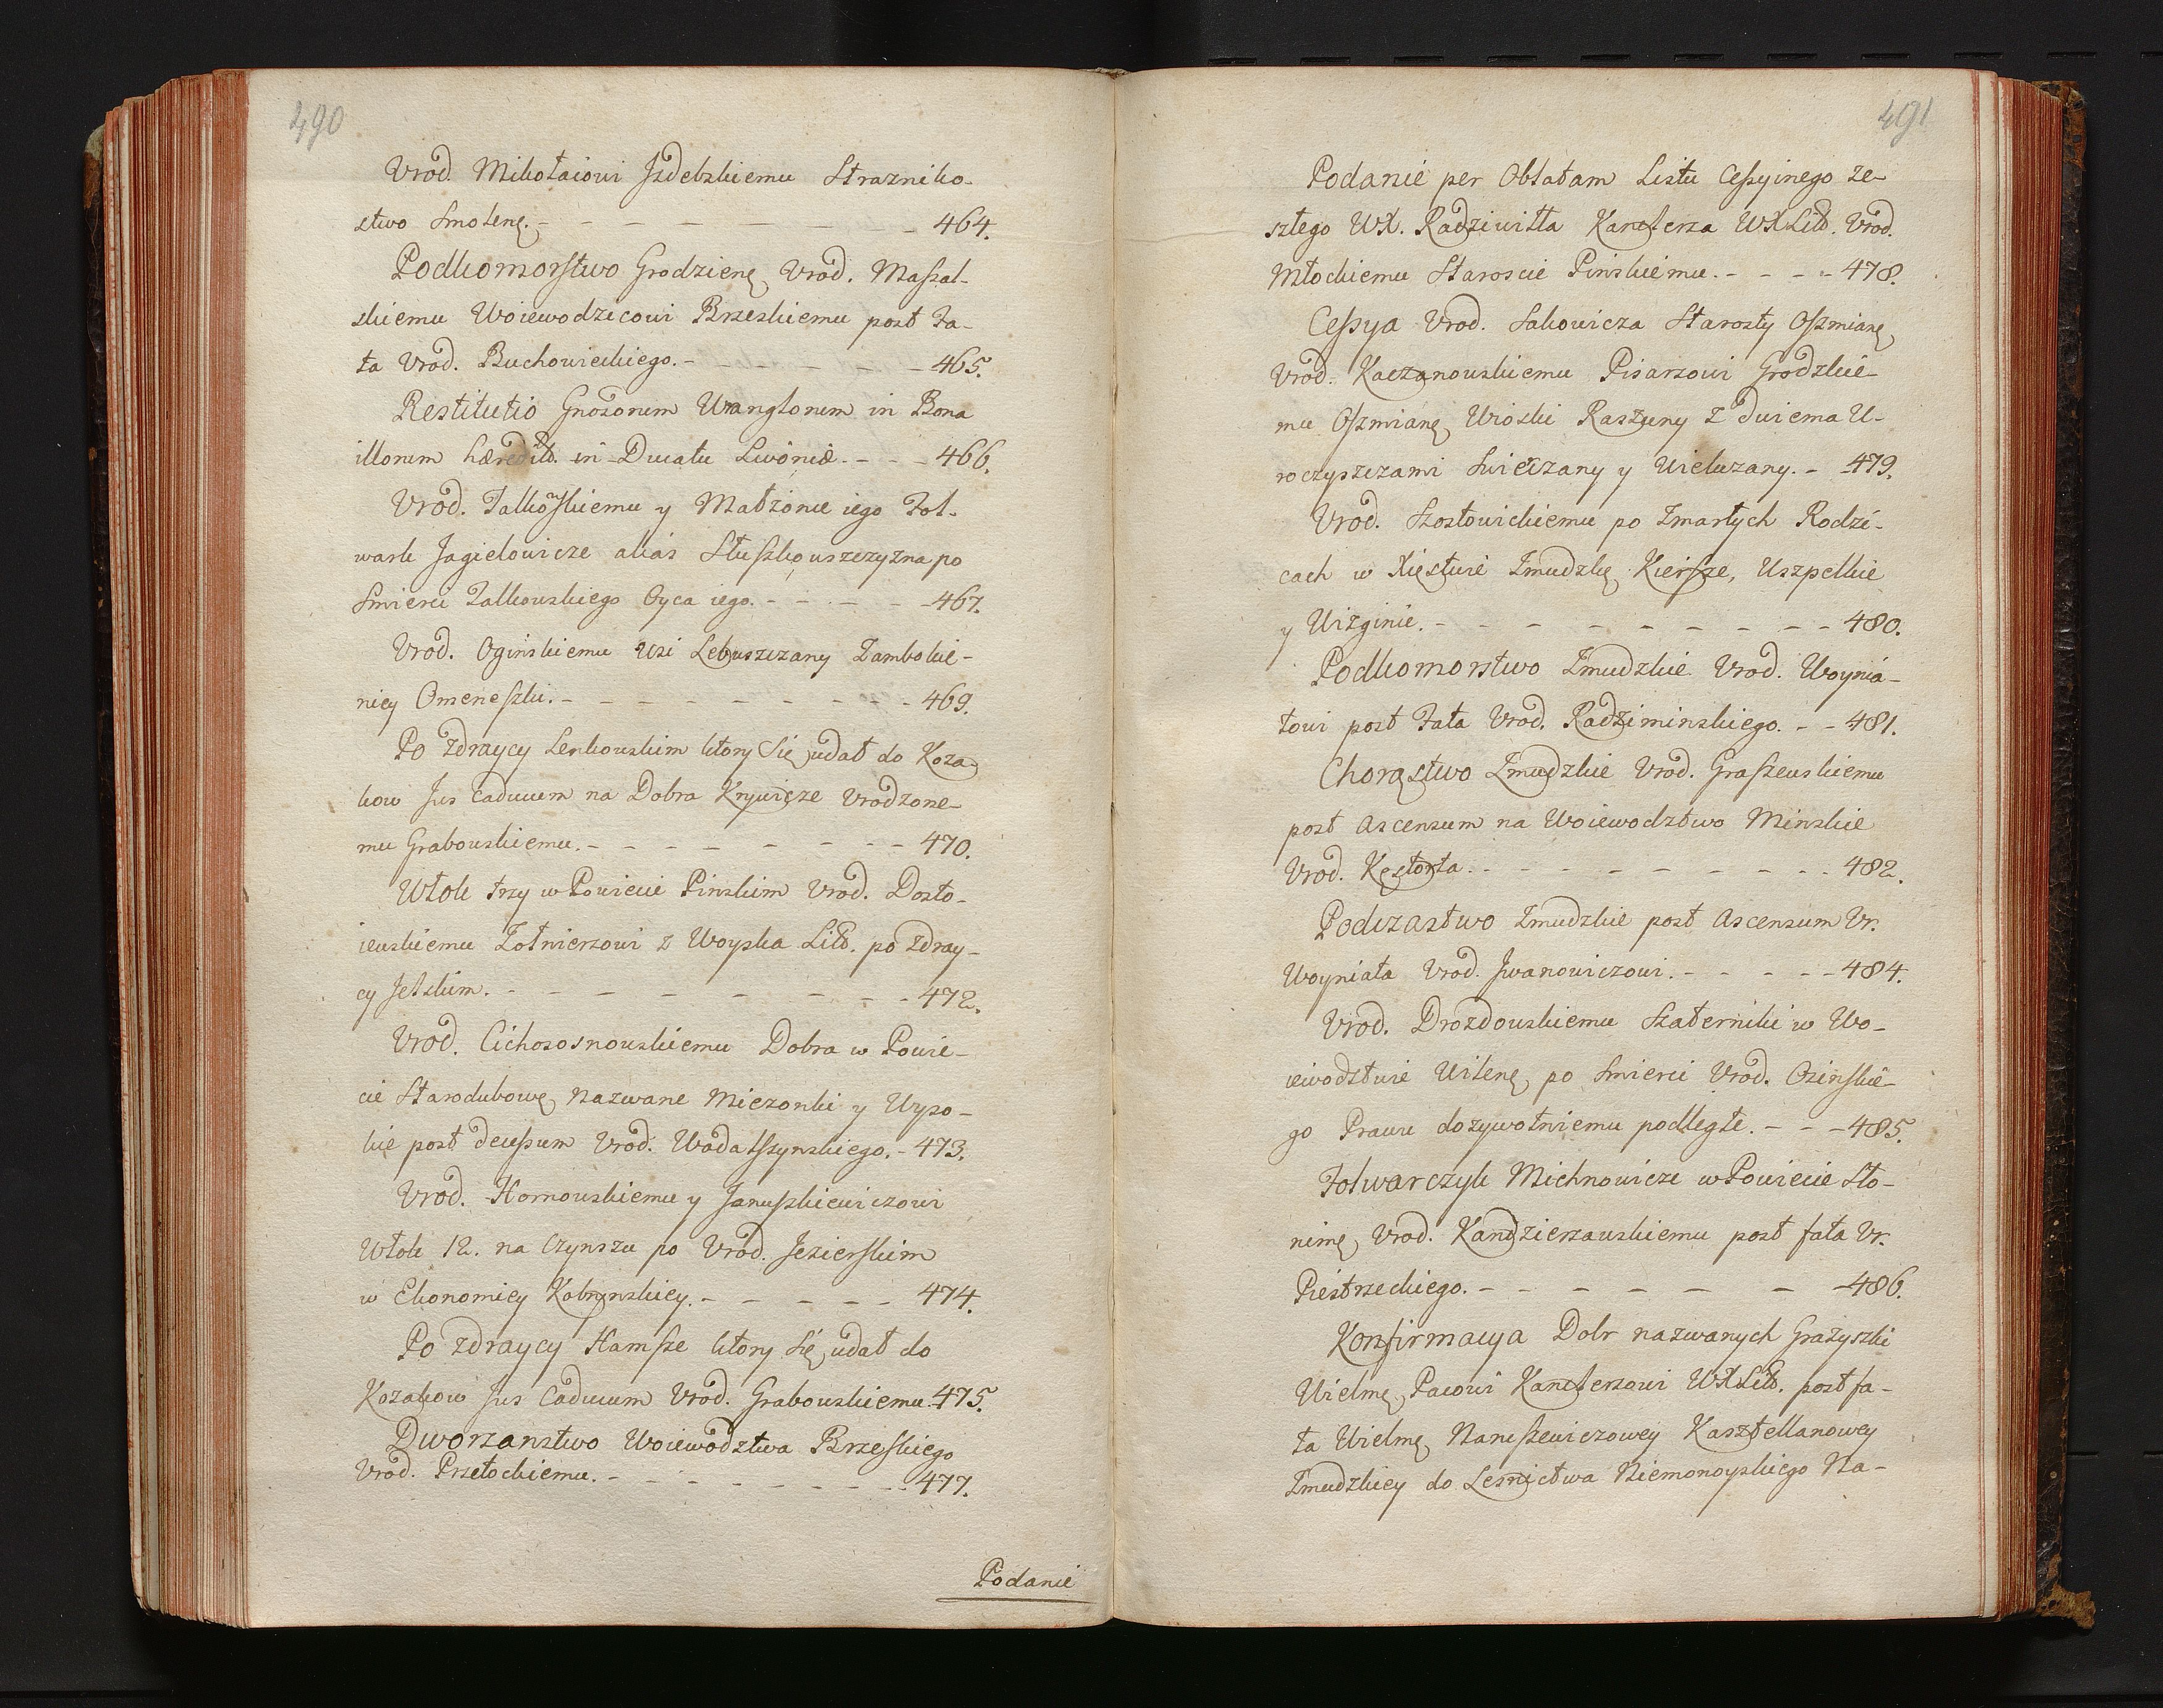 490
Vrod. Mikołaiowi Jzdebskiemu Strazniko-
stwo Smolenę. - - - - - - - 464.
Podkomorstwo Grodzienę Vrod. Massal-
skiemu Woiewodzicowi Brzeskiemu post Fa-
ta Vrod. Buchowieckiego. - - - - - - 465.
Restitutio Gnosorum Wranglorum in Bona
illorum hæredit. in Ducatu Livoniæ - - - 466.
Vrod. Falkoskiemu y Małzonce iego Fol-
wark Jagielowicze alias Słuszkowszczyzna po
Smierci Falkowskiego Oyca iego. - - - - - 467.
Vrod. Oginskiemu Wsi Lebuszczany Zambokie-
nicy Omeneszki. - - - - - - - - - 469.
Po Zdraycy Lenkowskim ktory Się udał do Koza-
kow Jus Caducum na Dobra Krywicze Vrodzone-
mu Grabowskiemu. - - - - - - - - 470.
Włok trzy w Powiecie Pinskim Vrod. Dosto-
iewskiemu Zołnierzowi z Woyska Lit. po Zdray-
cy Jelskim. - - - - - - - - - 472.
Vrod. Cichososnowskiemu Dobra w Powie-
cie Starodubowę Nazwane Miezonki y Wyso-
kie post decessum Vrod. Wadalszynskiego. - 473.
Vrod. Hornowskiemu y Januszkiewiczowi
Włok 12. na Czynszu po Vrod. Jezierskim
w Ekonomiey Kobrynskiey. - - - - - 474.
Po Zdraycy Hamsze ktory Się udał do
Kozakow Jus Caducum Vrod. Grabowskiemu. 475.
Dworzanstwo Woiewodztwa Brzeskiego
Vrod. Przełockiemu. - - - - - - - - 477.
Podanie
491
Podanie per Oblatam Listu Cessyinego ze-
szłego WX. Radziwiłła Kanclerza WXLit. Vrod.
Młockiemu Staroscie Pinskiemu. - - - - 478.
Cessya Vrod. Sakowicza Starosty Oszmianę
Vrod. Kaczanowskiemu Pisarzowi Grodzkie-
mu Oszmianę Wioski Raszuny z dwiema U-
roczyszczami Swierzany y Wieluzany. - 479.
Vrod. Szostowickiemu po Zmarłych Rodzi-
cach w Xięstwie Zmudzkę Kiersze, Uszpelkie
y Wizginie. - - - - - - - - - - 480.
Podkomorstwo Zmudzkie Vrod. Woynia-
towi post Fata Vrod. Radziminskiego. - - 481.
Chorąstwo Zmudzkie Vrod. Graszewskiemu
post Ascensum na Woiewodztwo Minskie
Vrod. Kęstorta. - - - - - - - - - 482.
Podczastwo Zmudzkie post Ascensum Vr.
Woyniata Vrod. Jwanowiczowi. - - - - - 484.
Vrod. Drozdowskiemu Szaterniki w Wo-
iewodztwie Wilenę po Smierci Vrod. Ozinskie-
go Prawu dozywotniemu podległe. - - - 485.
Folwarczyk Michnowicze w Powiecie Sło-
nimę Vrod. Kandzierzawskiemu post fata Vr.
Piestrzeckiego. - - - - - - - 486.
Konfirmacya Dobr nazwanych Grażyszki
Wielmę Pacowi Kanclerzowi WXLit. post fa-
ta Wielmę Naruszewiczowey Kasztellanowey
Zmudzkiey do Lesnictwa Niemonoyskiego Na-